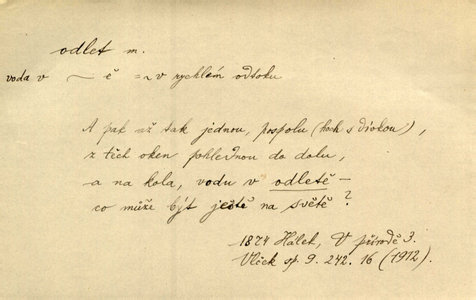 odlet m.
voda v ~ ě = ~ v rychlém odtoku
A pak až tak jednou, pospolu (hoch s dívkou),
z těch oken pohlednou do dolu,
a na kola, vodu v odletě –
co může být ještě na světě?
1874 Hálek, V přírodě 3.
Vlček sp. 9. 242. 16 (1912)